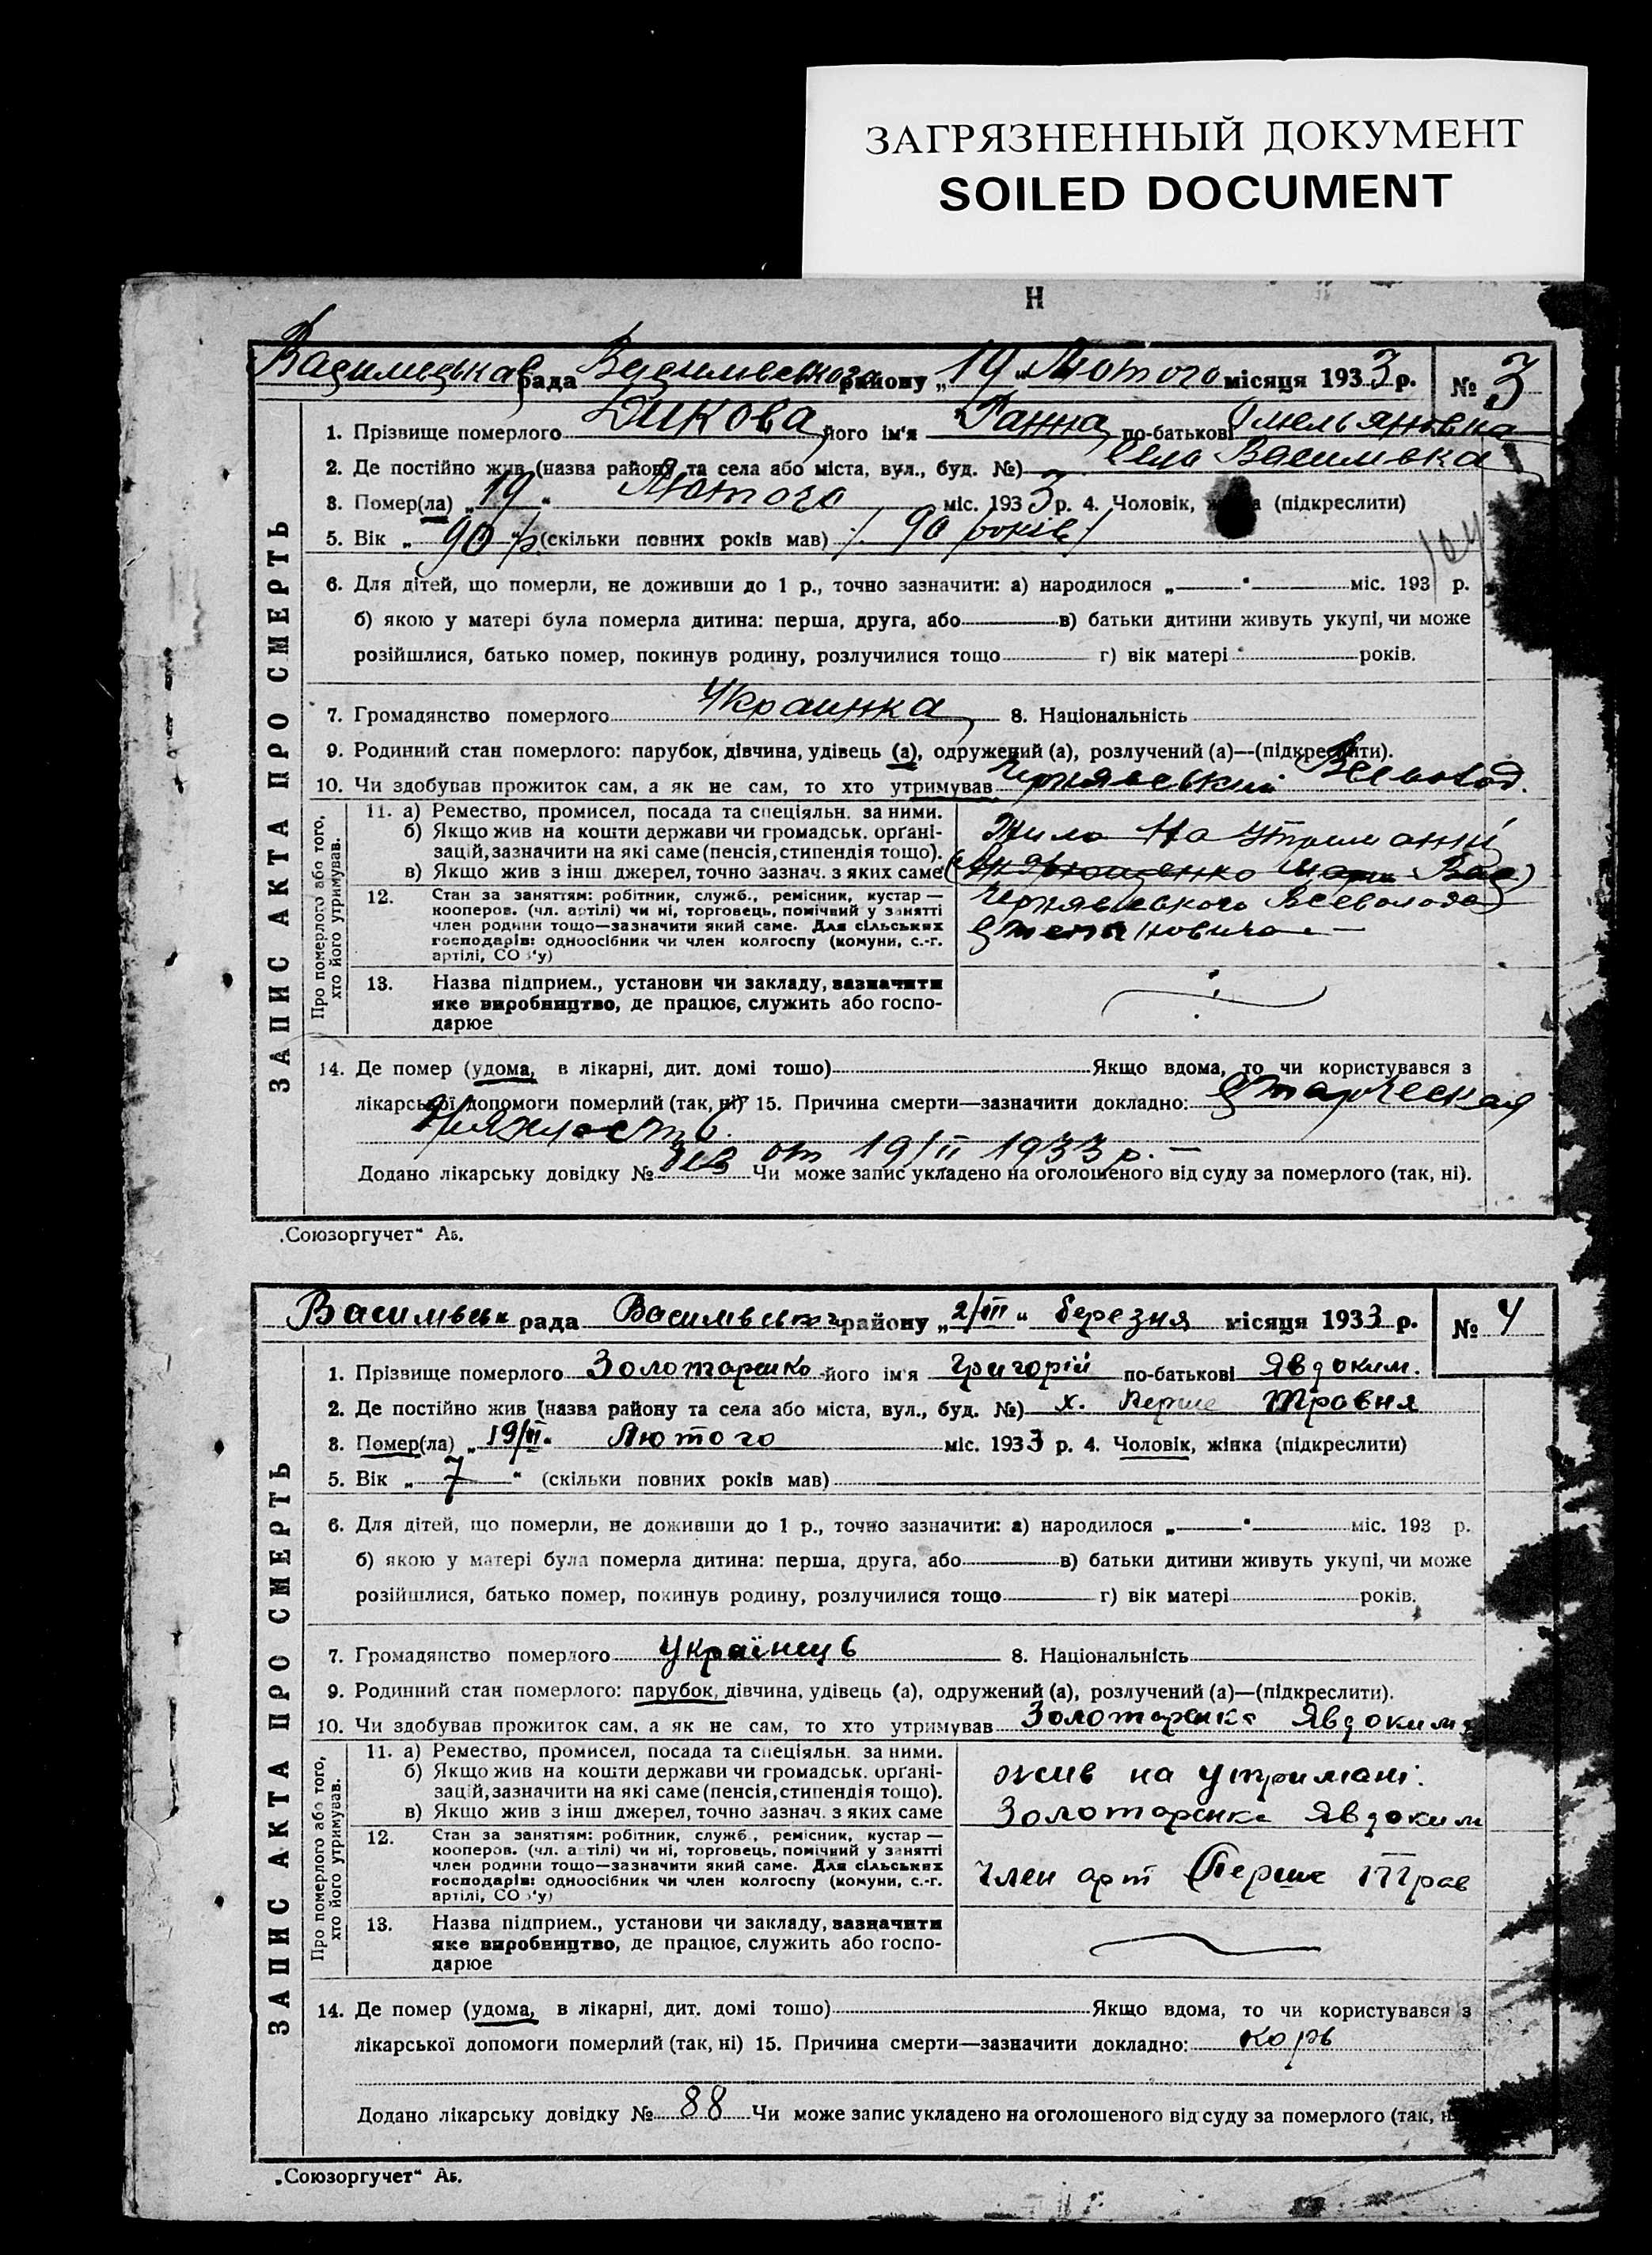 ЗАГРЯЗНЕННЫЙ ДОКУМЕНТ
SOILED DOCUMENT
Н
рада району „19“ Лютого місяця 1933 р. № 3
1. Прізвище померлого Дикова його ім'я Ганна по-батькові Омельяновна
2. Де постійно жив (назва району та села або міста, вул., буд. №) Село Василівка
3. Помер(ла) „19“ Лютого міс. 1933 р. 4. Чоловік, (підкреслити)
5. Вік „90 р. (скільки повних років мав) / 90 років /
6. Для дітей, що померли, не доживши до 1 р., точно зазначити: а) народилося „ “ міс. 193 р.
б) якою у матері була померла дитина: перша, друга, або в) батьки дитини живуть укупі, чи може
розійшлися, батько помер, покинув родину, розлучилися тощо г) вік матері років.
7. Громадянство померлого Украинка 8. Національність
9. Родинний стан померлого: парубок, дівчина, удівець (а), одружений (а), розлучений (а)—(підкреслити).
10. Чи здобував прожиток сам, а як не сам, то хто утримував Чернявский Всеволод.
11. а) Ремество, промисел, посада та спеціяльн. за ними.
б) Якщо жив на кошти держави чи громадськ. орґані-
зацій, зазначити на які саме (пенсія, стипендія тощо).
в) Якщо жив з інш джерел, точно зазнач. з яких саме
Жила на утриманні
Всеволода
12. Стан за заняттям: робітник, служб., ремісник, кустар —
кооперов. (чл. артілі) чи ні, торговець, помічний у занятті
член родини тощо—зазначити який саме. Для сільських
господарів: одноосібник чи член колгоспу (комуни, с.-г.
артілі, СО з'у)
13. Назва підприєм., установи чи закладу, зазначити
яке виробництво, де працює, служить або госпо-
дарює
Про померлого або того,
хто його утримував.
ЗАПИС АКТА ПРО СМЕРТЬ
14. Де помер (удома, в лікарні, дит. домі тощо) Якщо вдома, то чи користувався з
лікарської допомоги померлий (так, ні) 15. Причина смерти—зазначити докладно: Старческая
от 19/II 1933 р. —
Додано лікарську довідку № Чи може запис укладено на оголошеного від суду за померлого (так, ні).
„Союзоргучет“ Аб.
Василівськ рада району „2/III“ березня місяця 1933 р. № 4
1. Прізвище померлого Золотаренко його ім'я Григорій по-батькові Явдоким.
2. Де постійно жив (назва району та села або міста, вул., буд. №) х. Перше Травня
3. Помер(ла) „19/II“ Лютого міс. 1933 р. 4. Чоловік, жінка (підкреслити)
5. Вік „ 7 “ (скільки повних років мав)
6. Для дітей, що померли, не доживши до 1 р., точно зазначити: а) народилося „ “ міс. 193 р.
б) якою у матері була померла дитина: перша, друга, або в) батьки дитини живуть укупі, чи може
розійшлися, батько помер, покинув родину, розлучилися тощо г) вік матері років.
7. Громадянство померлого Українець 8. Національність
9. Родинний стан померлого: парубок, дівчина, удівець (а), одружений (а), розлучений (а)—(підкреслити).
10. Чи здобував прожиток сам, а як не сам, то хто утримував Золотаренка Явдокима
11. а) Ремество, промисел, посада та спеціяльн. за ними.
б) Якщо жив на кошти держави чи громадськ. орґані-
зацій, зазначити на які саме (пенсія, стипендія тощо).
в) Якщо жив з інш джерел, точно зазнач. з яких саме
жив на утримані.
Золотаренка Явдоким
12. Стан за заняттям: робітник, служб., ремісник, кустар —
кооперов. (чл. артілі) чи ні, торговець, помічний у занятті
член родини тощо—зазначити який саме. Для сільських
господарів: одноосібник чи член колгоспу (комуни, с.-г.
артілі, СО з'у)
член арт Перше Трав
13. Назва підприєм., установи чи закладу, зазначити
яке виробництво, де працює, служить або госпо-
дарює
Про померлого або того,
хто його утримував.
ЗАПИС АКТА ПРО СМЕРТЬ
14. Де помер (удома, в лікарні, дит. домі тощо) Якщо вдома, то чи користувався з
лікарської допомоги померлий (так, ні) 15. Причина смерти—зазначити докладно: корь
Додано лікарську довідку № 88 Чи може запис укладено на оголошеного від суду за померлого (так,
„Союзоргучет“ Аб.